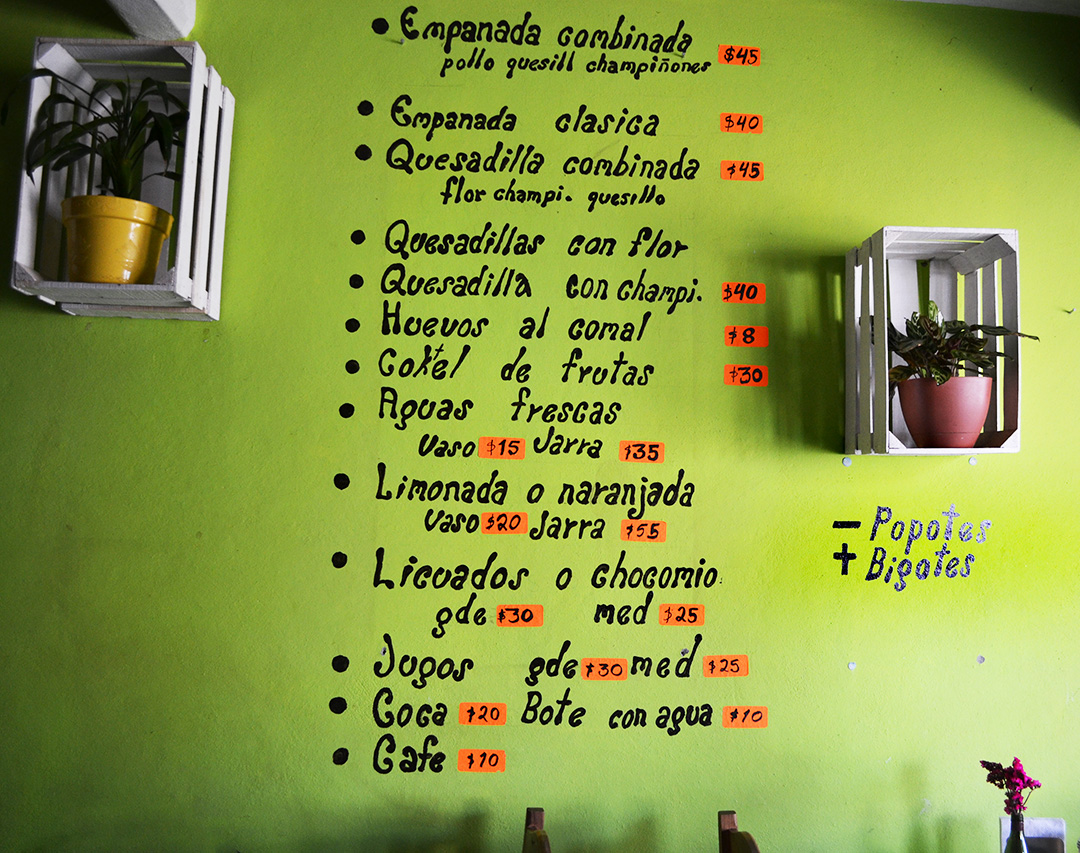 • Empanada combinada $45
pollo quesill champiñones
• Empanada clasica $40
• Quesadilla combinada $45
flor champi. quesillo
• Quesadillas con flor
• Quesadilla con champi. $40
• Huevos al comal $8
• Coktel de frutas $30
• Aguas frescas
Vaso $15 Jarra $35
• Limonada o naranjada
Vaso $20 Jarra $55
• Licuados o chocomio
gde $30 med $25
• Jugos gde $30 med $25
• Coca $20 Bote con agua $10
• Cafe $10
– Popotes
+ Bigotes